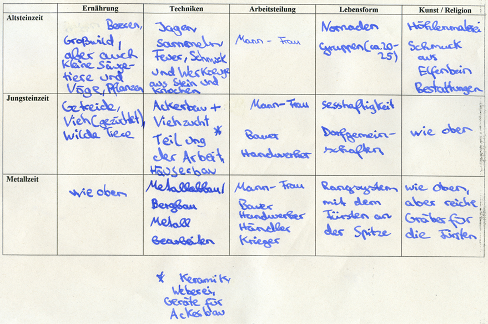 Ernährung Techniken Arbeitsteilung Lebensform Kunst / Religion
Altsteinzeit
Beeren,
Großwild,
aber auch
kleine Säuge-
tiere und
Vögel, Pflanzen
Jagen
Sammeln
Feuer, Schmuck
und Werkzeuge
aus Stein und
Knochen
Mann - Frau
Nomaden
Gruppen (ca 20-
25)
Höhlenmalerei
Schmuck
aus
Elfenbein
Bestattungen
Jungsteinzeit
Getreide,
Vieh (gezüchtet),
Wilde Tiere
Ackerbau +
Viehzucht
Teilung *
der Arbeit
Häuserbau
Mann - Frau
Bauer
Handwerker
Sesshaftigkeit
Dorfgemein-
schaften
wie oben
Metallzeit
wie oben
Metallabbau/
Bergbau
Metall
Bearbeiten
Mann - Frau
Bauer
Handwerker
Händler
Krieger
Rangsystem
mit dem
Fürsten an
der Spitze
wie oben,
aber reiche
Gräber für
die Fürsten
* Keramik,
Weberei,
Geräte für
Ackerbau